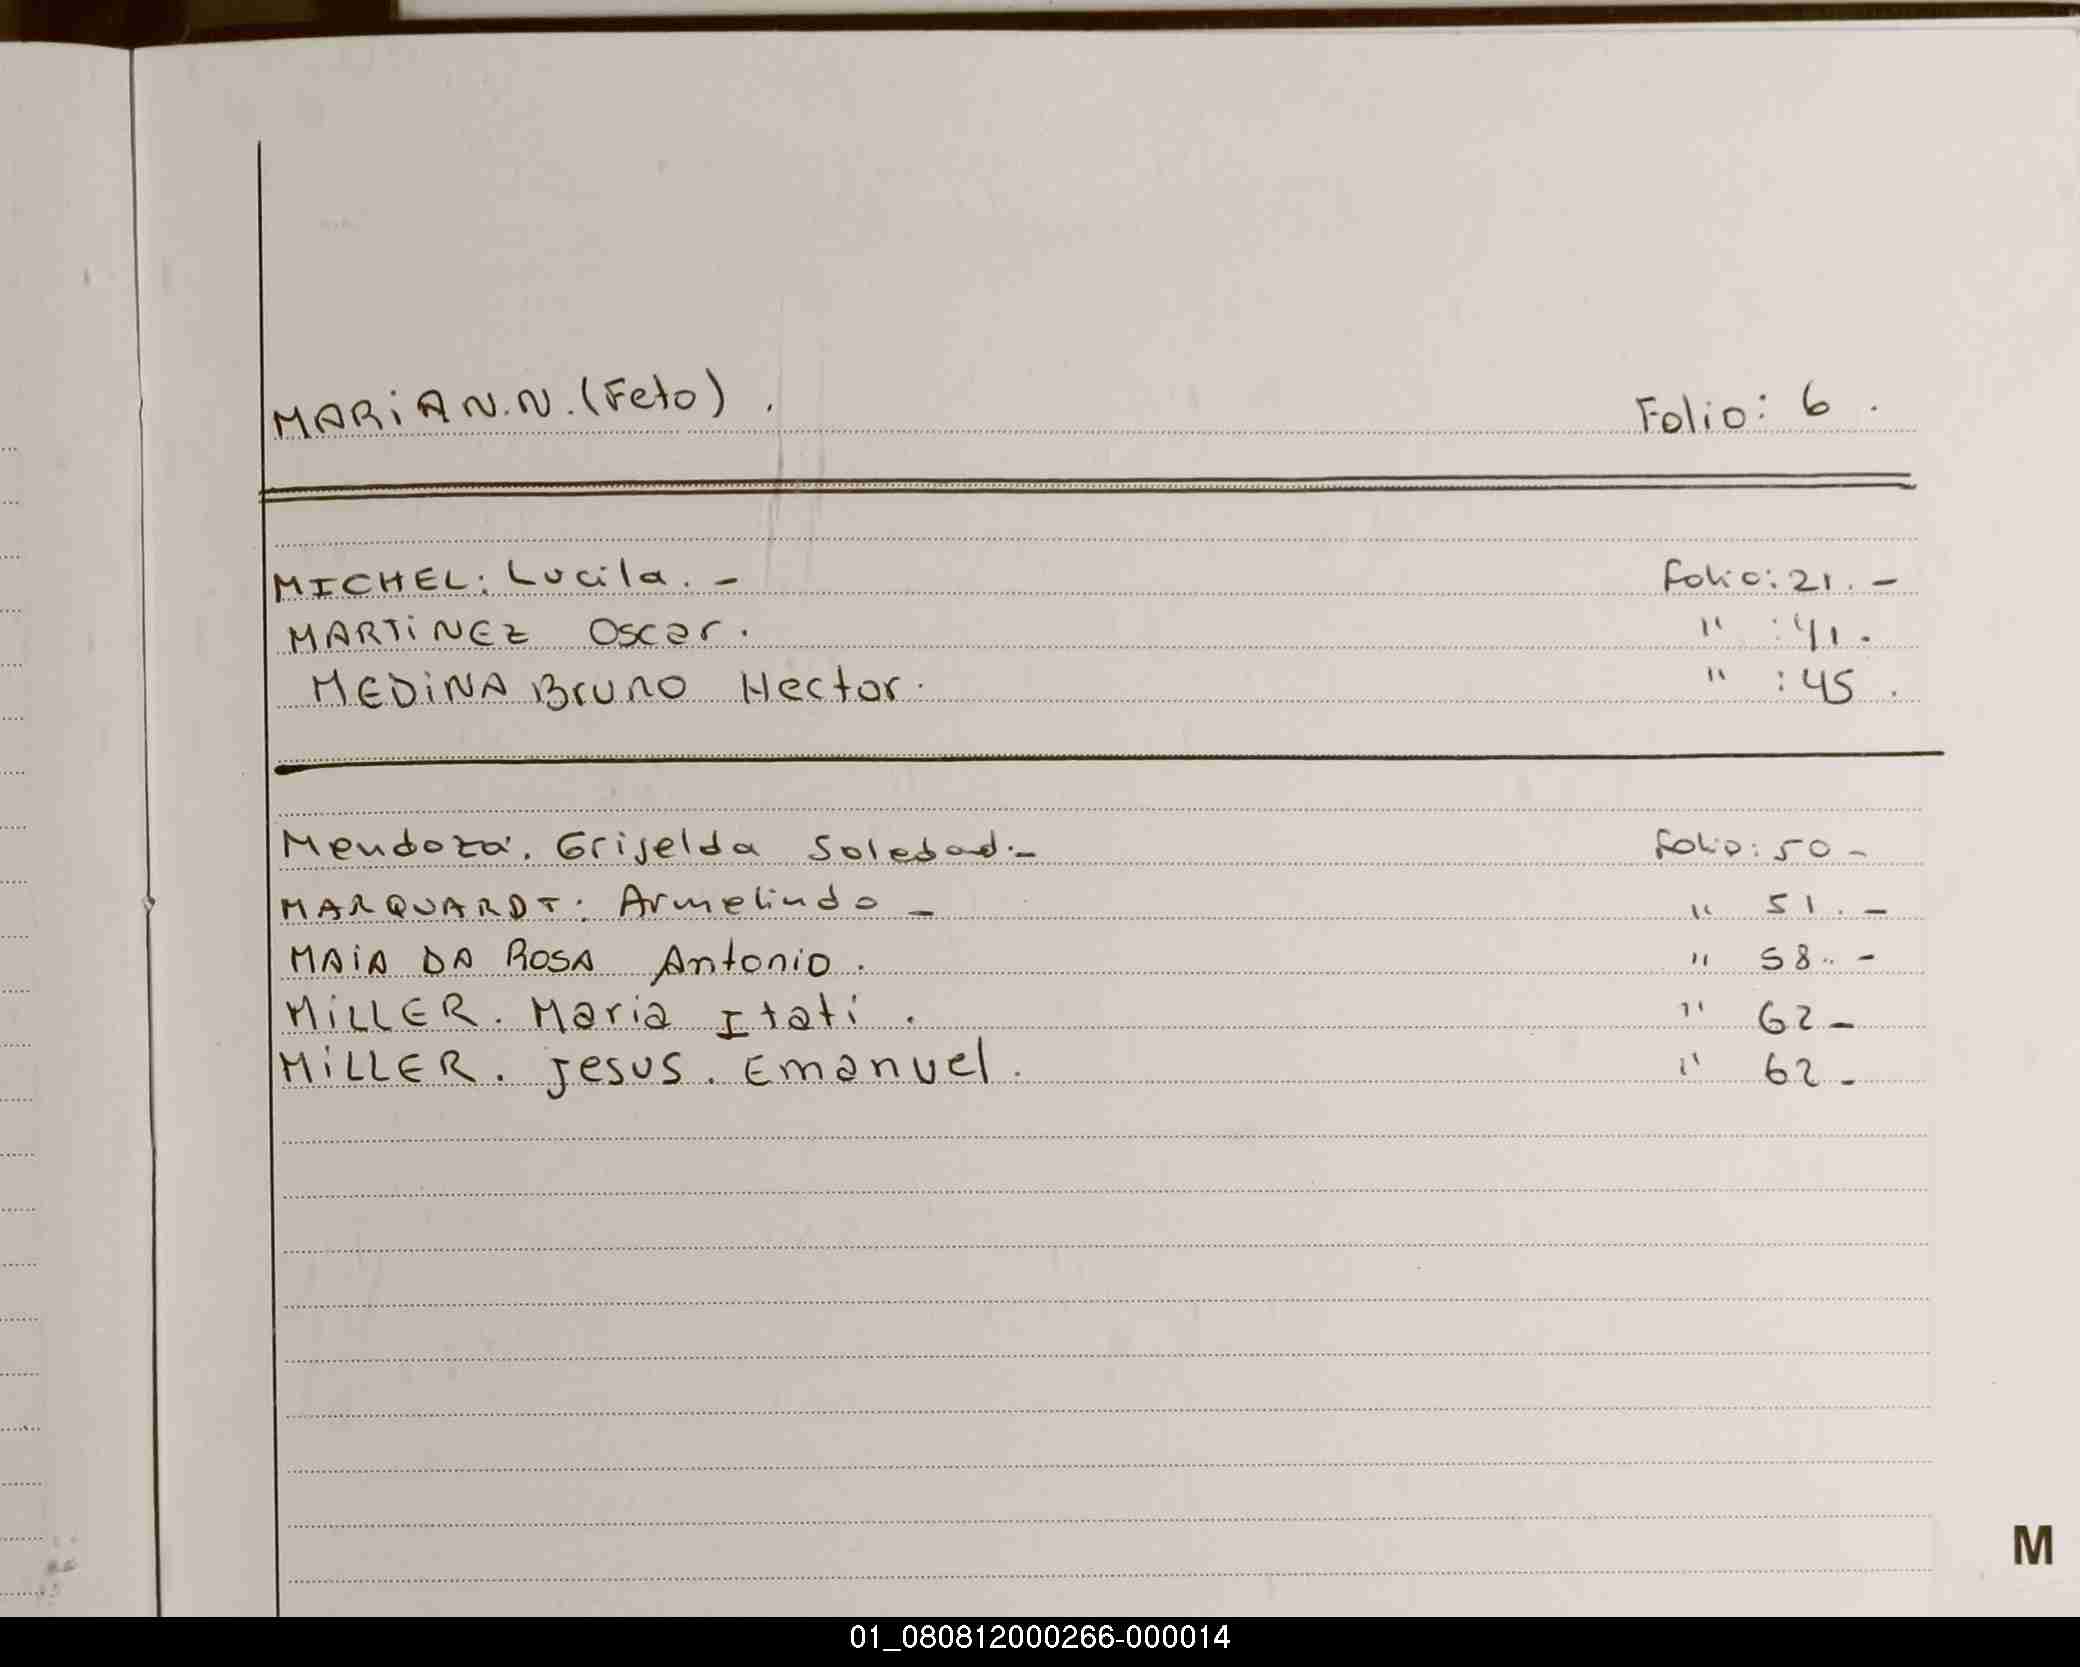 MARIAN.N.(Feto). Folio: 6.
MICHEL: Lucila. - Folio: 21. -
MARTINEZ Oscar. " : 41.
MEDINA Bruno Hector. " : 45.
Mendoza. Griselda Soledad.- Folio: 50 -
MARQUARDT: Armelindo - " 51. -
MAIA DA ROSA Antonio. " 58.. -
MILLER. Maria Itati. " 62 -
MILLER. Jesus. Emanuel. " 62 -
M
01_080812000266-000014